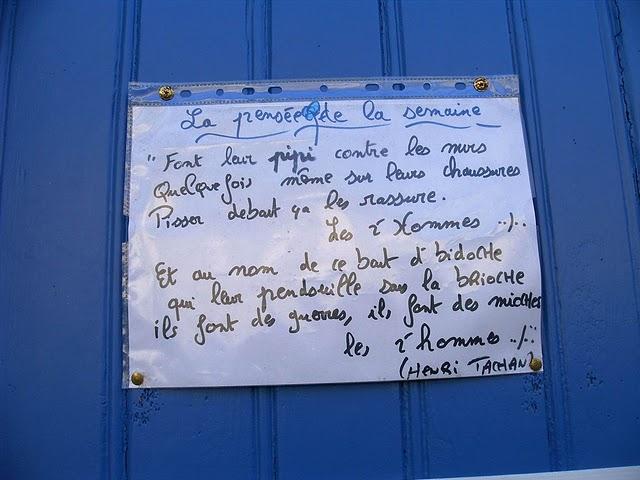 La pensée de la semaine
" Font leur pipi contre les murs
Quelquefois même sur leurs chaussures
Pisser debout ça les rassure.
Les z'Hommes ../..
Et au nom de ce bout d'bidoche
qui leur pendouille sous la brioche
ils font des guerres, ils font des mioches
les z'hommes ../..
(HENRI TACHAN)